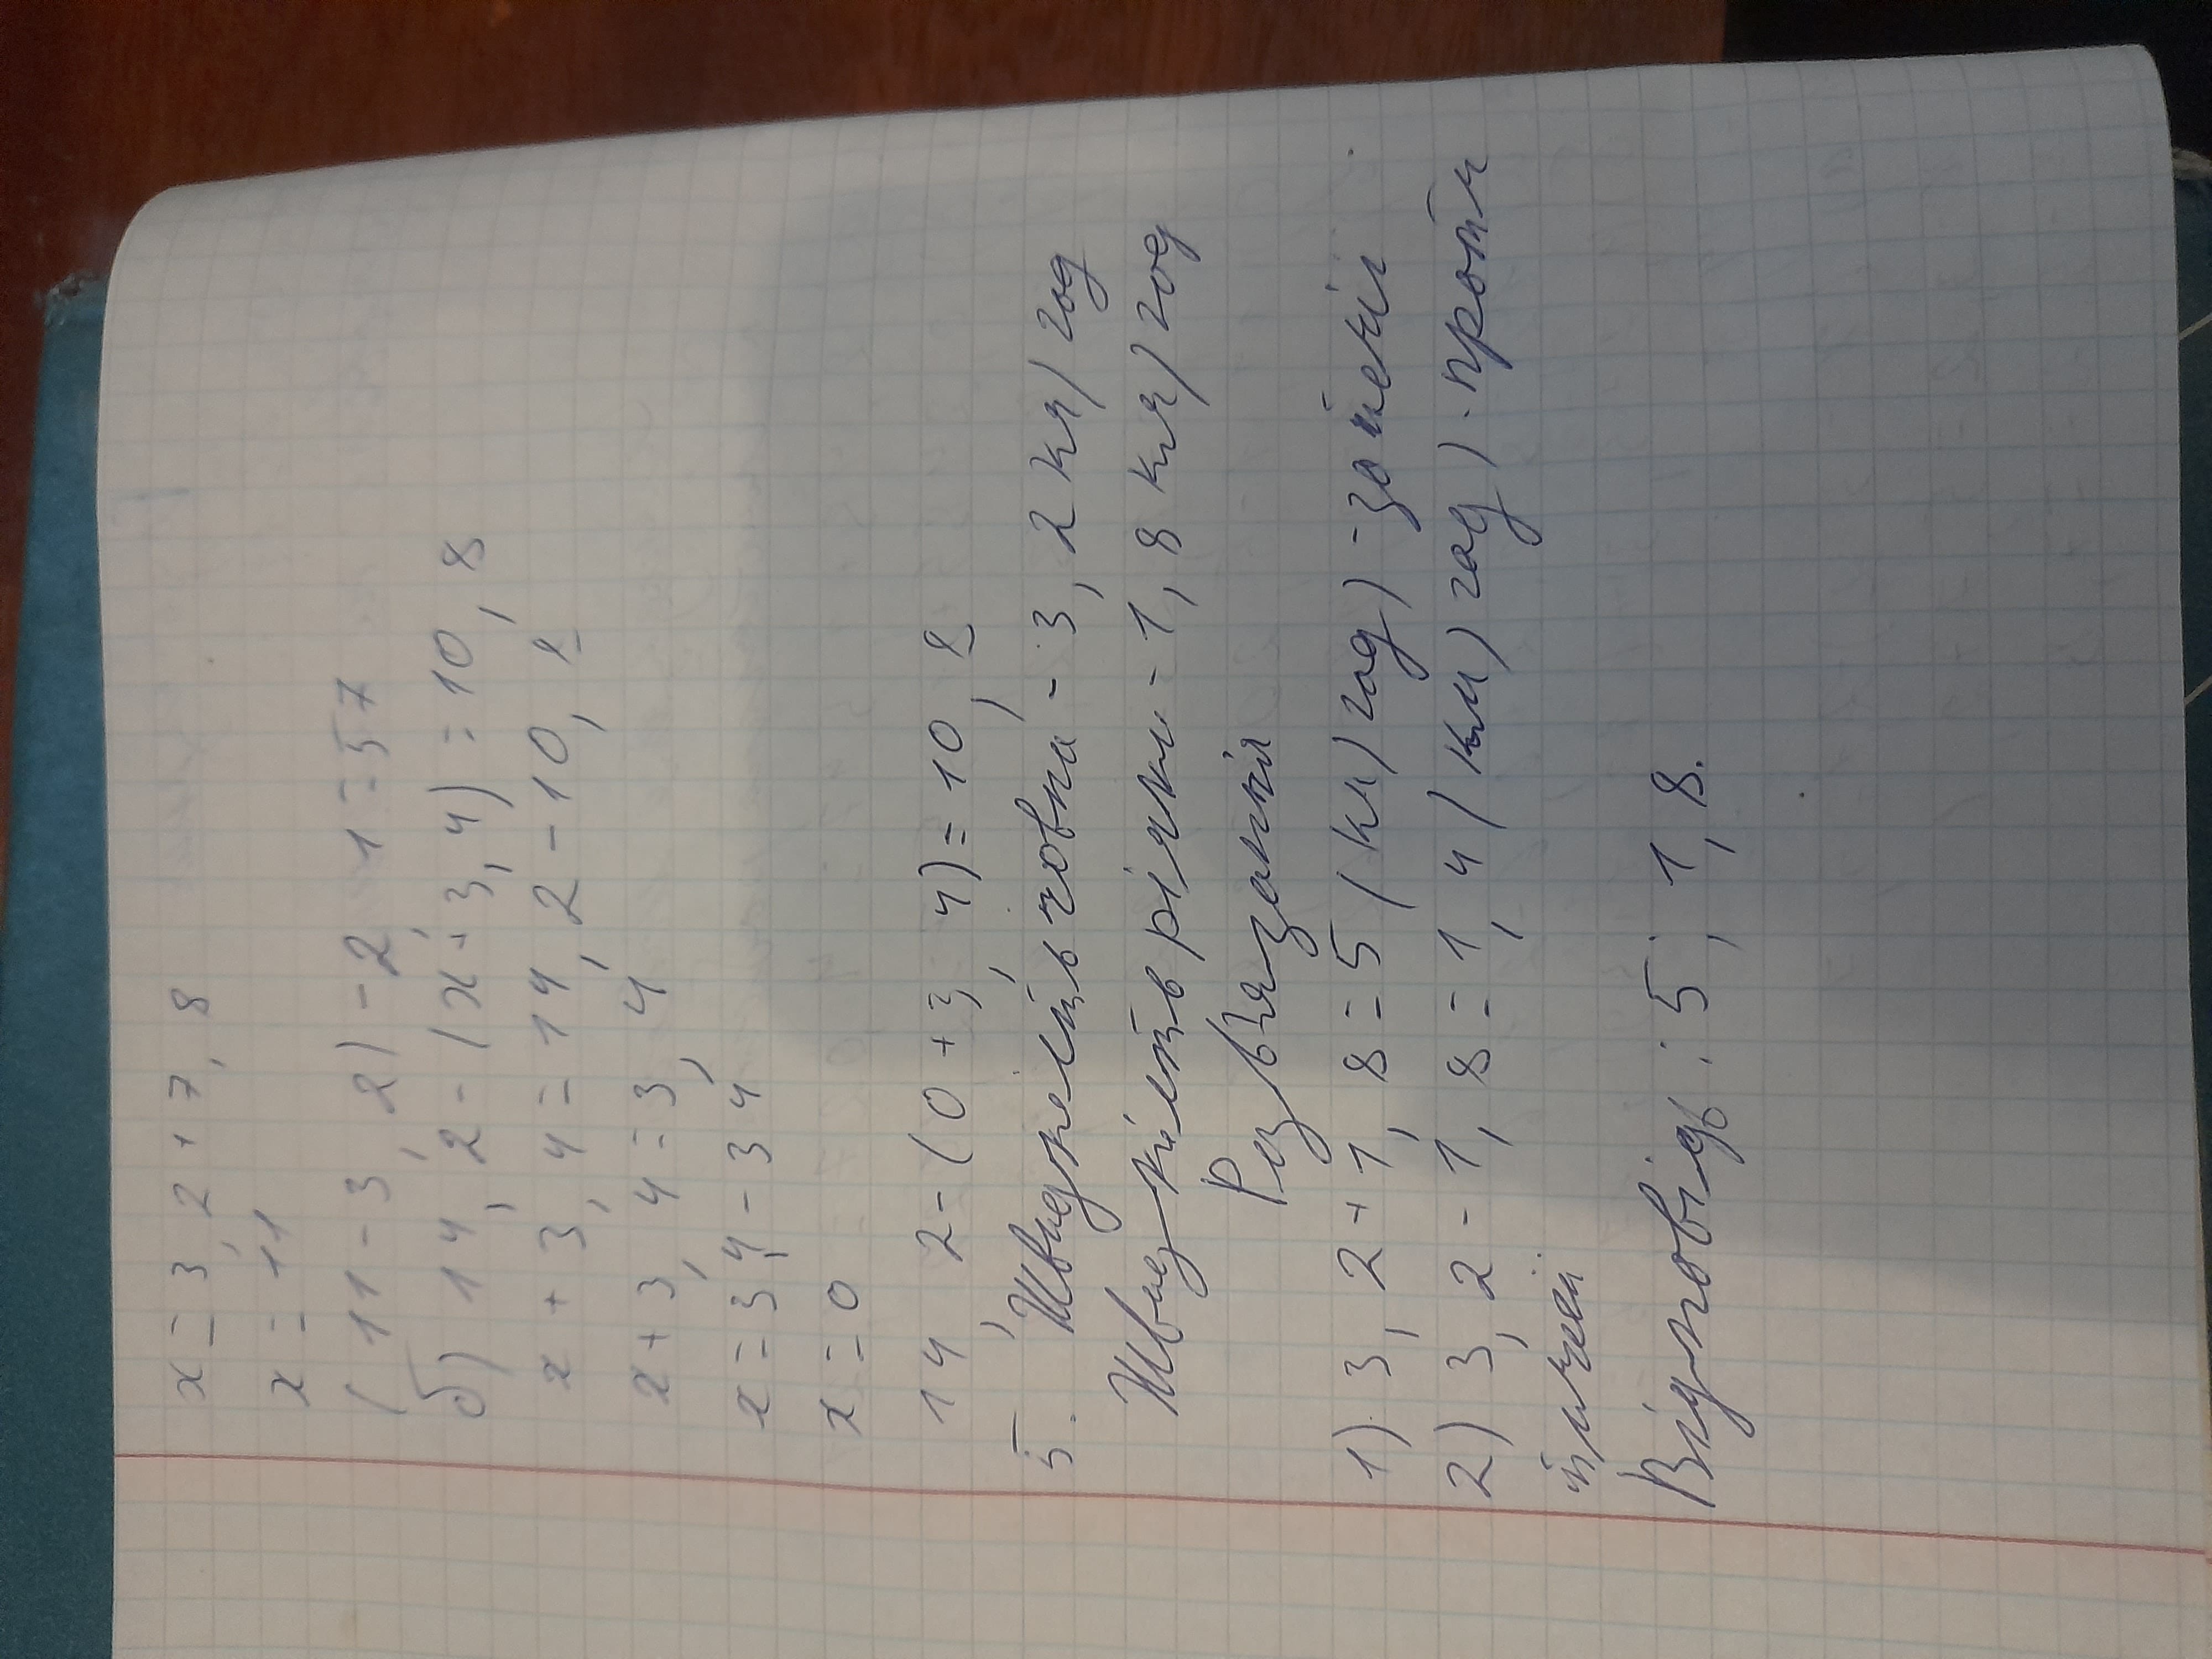 x = 3,2 + 7,8
x = 11
(11 - 3,2) - 2,1 = 57
б) 14,2 - (x + 3,4) = 10,8
x + 3,4 = 14,2 - 10,8
x + 3,4 = 3,4
x = 3,4 - 3,4
x = 0
14,2 - (0 + 3,4) = 10,8
5. Швидкість човна - 3,2 км/год
Швидкість річки - 1,8 км/год
Розв'язання
1) 3,2 + 1,8 = 5 (км/год) - за течії
2) 3,2 - 1,8 = 1,4 (км/год) - проти
течії
Відповідь: 5; 1,8.